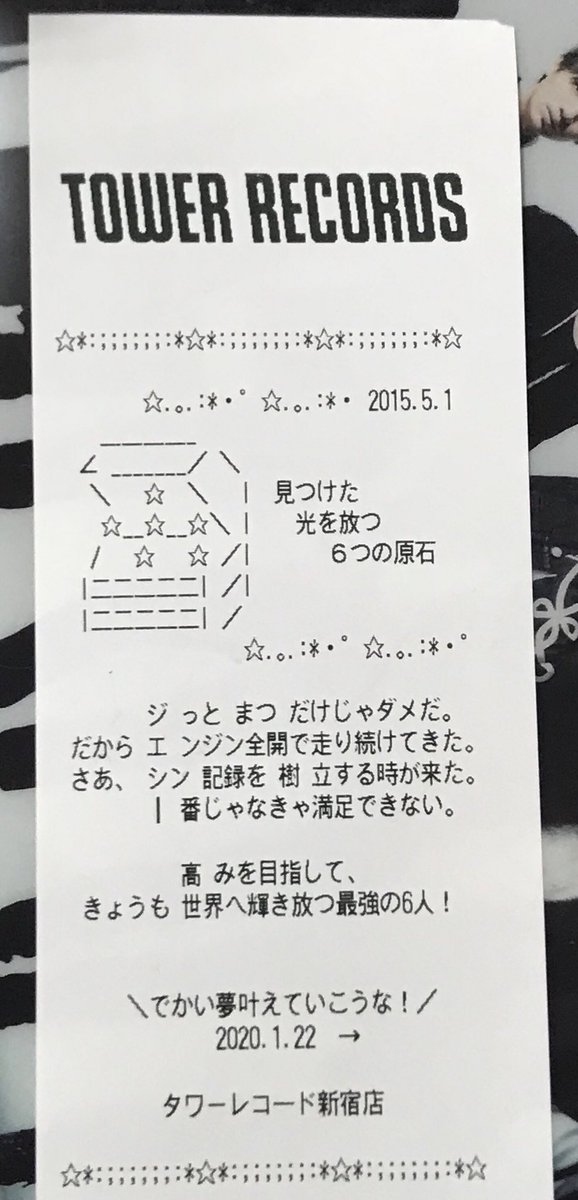 TOWER RECORDS
☆*:;;;;;;:*☆*:;;;;;;:*☆*:;;;;;;:*☆
☆.｡.:*・ﾟ ☆.｡.:*・ 2015.5.1
＿＿＿＿＿＿
∠ ＿＿＿＿＿／ ＼
＼ ☆ ＼ ｜ 見つけた
☆__☆__☆＼｜ 光を放つ
/ ☆ ☆ ／| ６つの原石
|ニニニニニ| ／|
|ニニニニニ| ／
☆.｡.:*・ﾟ ☆.｡.:*・ﾟ
ジ っと まつ だけじゃダメだ。
だから エ ンジン全開で走り続けてきた。
さあ、 シン 記録を 樹 立する時が来た。
┃ 番じゃなきゃ満足できない。
高 みを目指して、
きょうも 世界へ輝き放つ最強の6人！
＼でかい夢叶えていこうな！／
2020.1.22 →
タワーレコード新宿店
☆*:;;;;;;:*☆*:;;;;;;:*☆*:;;;;;;:*☆